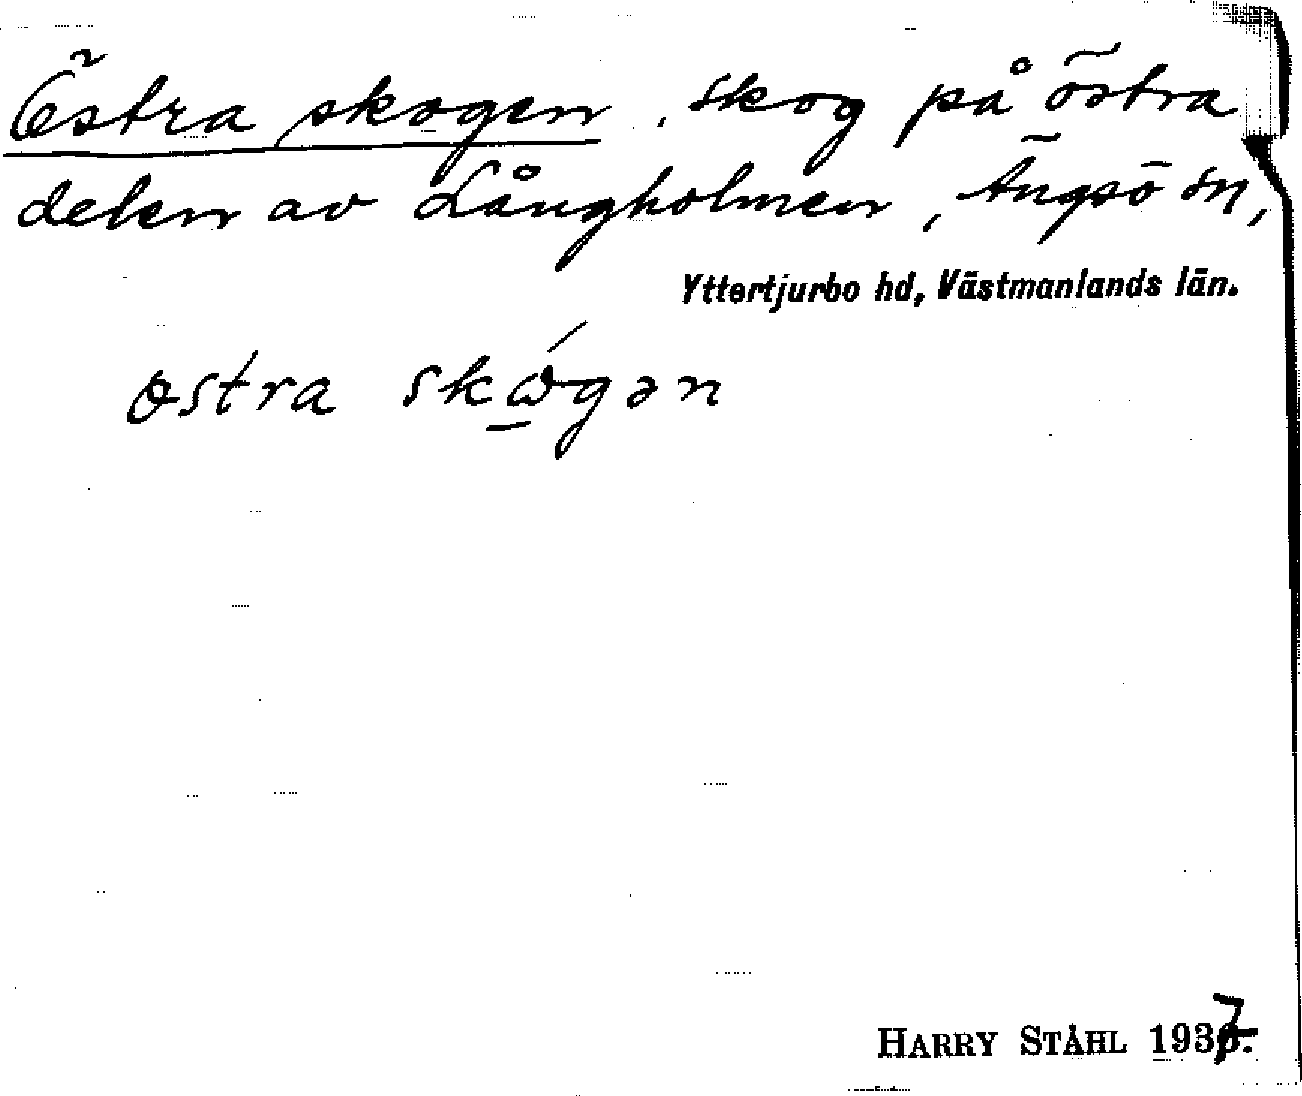 Östra skogen, skog på östra
delen av Långholmen, Ängsö sn,
Yttertjurbo hd, Västmanlands län.
østra skώ̱gən
HARRY STÅHL 1937.